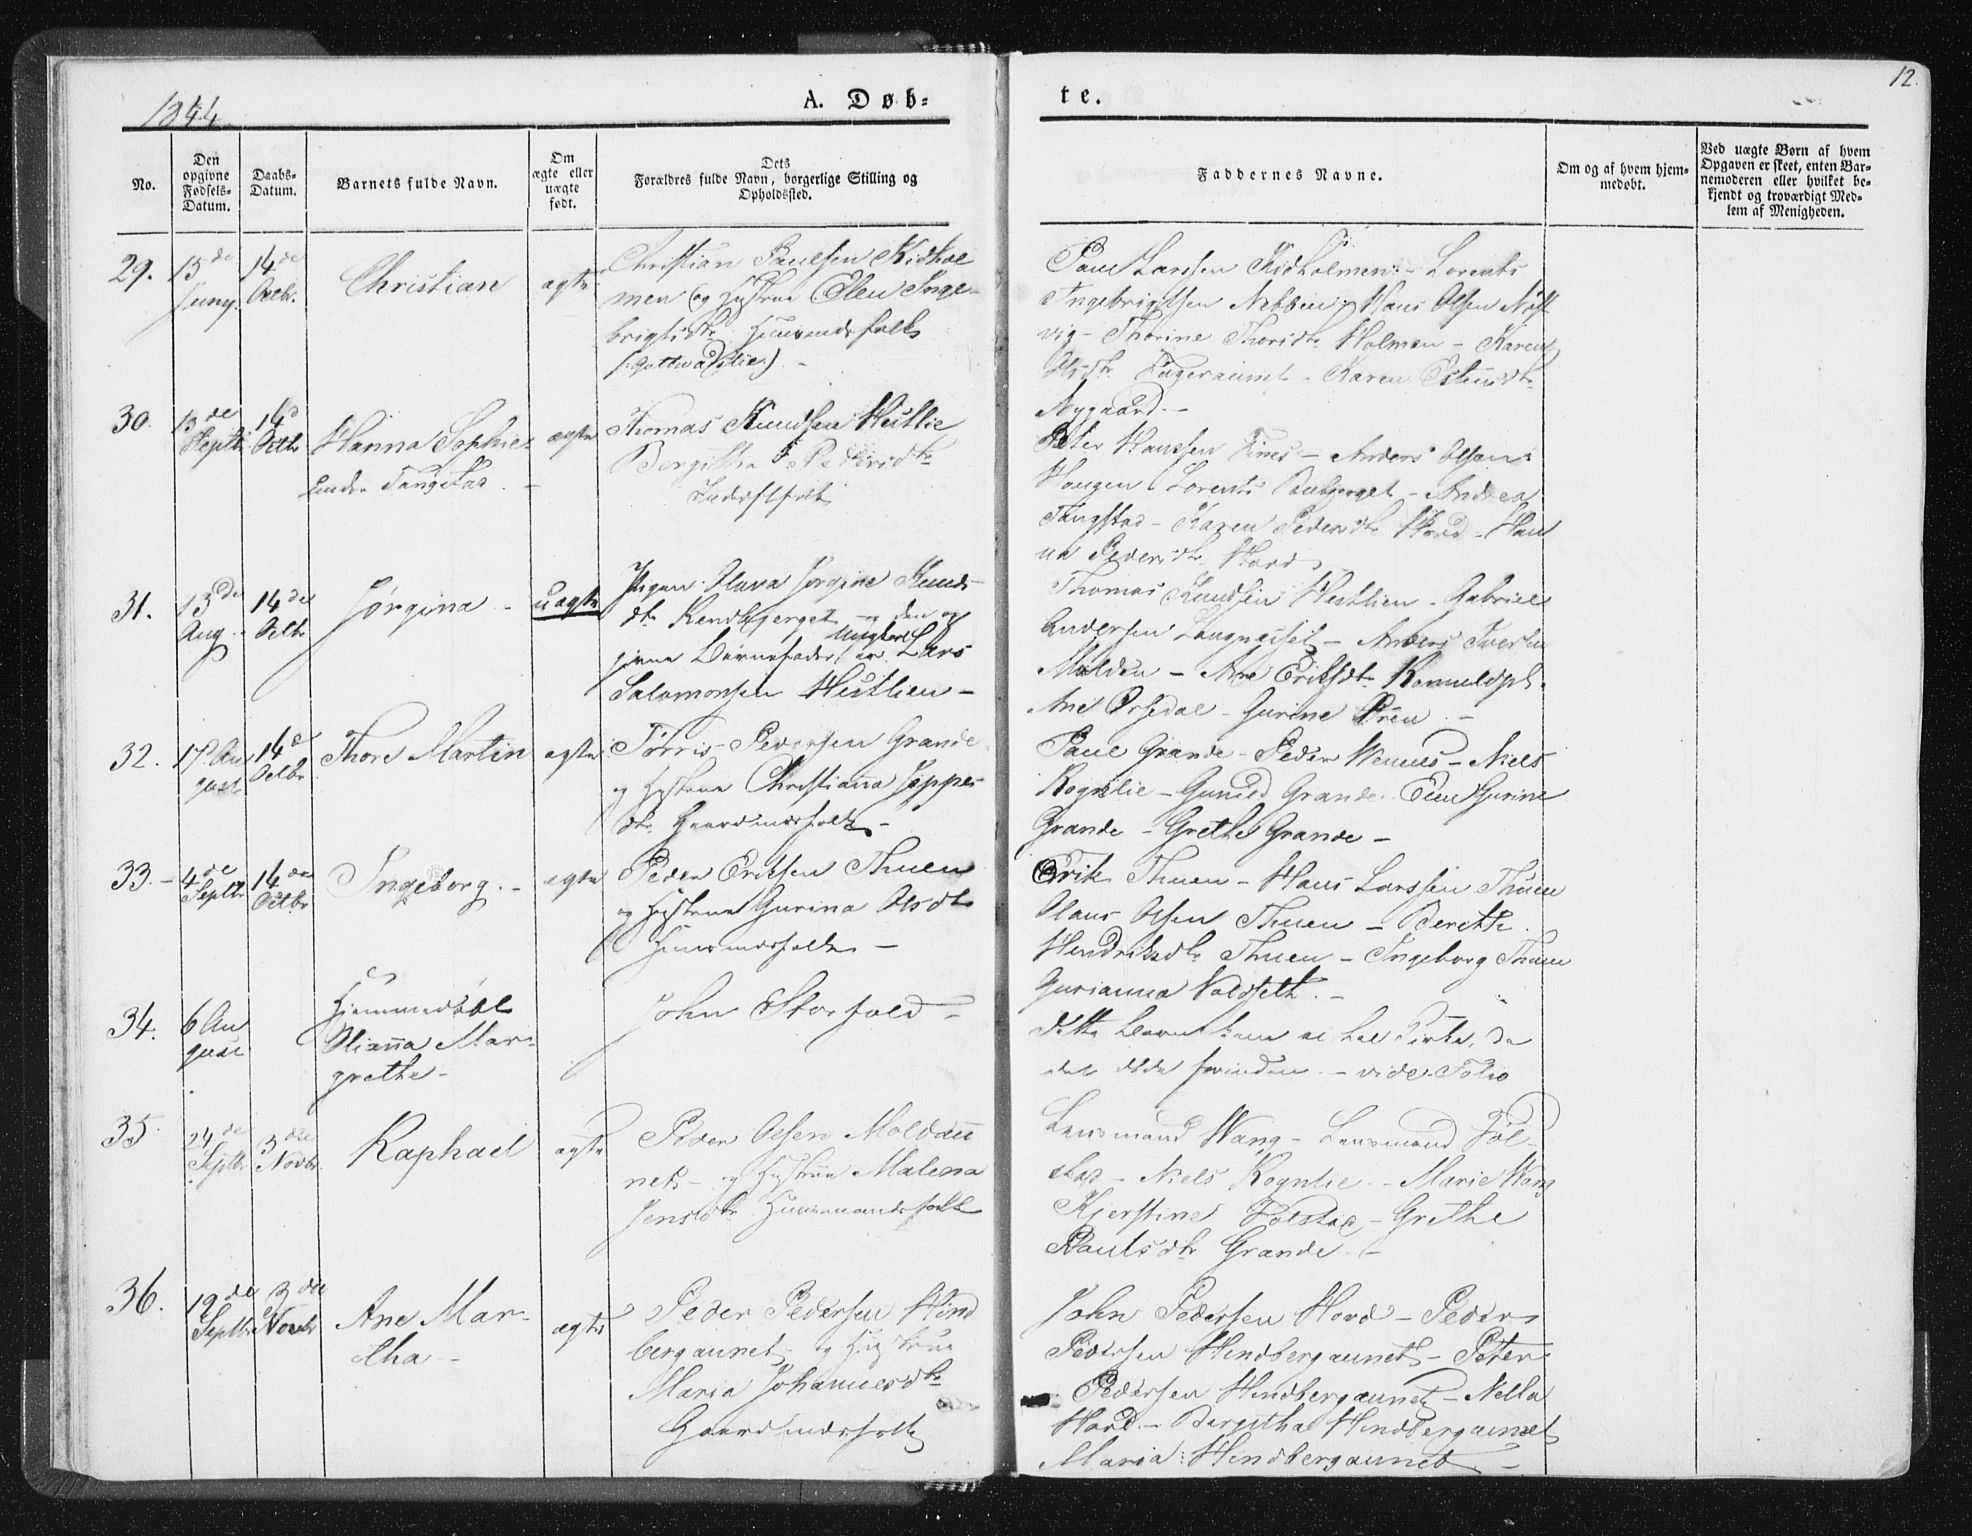 1844
A. Døb=
te.
12.
No.
Den opgivne Fødsels-Datum.
Daabs-Datum.
Barnets fulde Navn.
Om ægte eller uægte født.
Dets Forældres fulde Navn, borgerlige Stilling og Opholdssted.
Faddernes Navne.
Om og af hvem hjemmedøbt.
Ved uægte Børn af hvem Opgaven er skeet, enten Barnemoderen eller hvilket bekjendt og troværdigt Medlem af Menigheden.
29.
15de Juny.
14de Octbr.
Christian
ægte
Christian Paulsen Kidhol
men og Hustrue Elen Inge-
brigtsdtr. Huusmandsfolk
Paul Larssen Kidholmen - Lorents
Ingebrigtsen Nebben - Hans Olsen
vig - Thorine Thorisdtr Holmen - Karen
Olsdtr. - Karen
Nygaard. -
30.
13de Septbr
14d Octbr
Hanna Sophie
ægte
Thomas Knudsen Hestlie
Bergitha Pedersdtr
Inderstfolk
Peter Hanssen - Anders Olsen
Haugen - Lorents - Andrea
Tangstad - Karen Pedersdtr Hord - Han
na Pedersdtr Hord
31.
13de Aug.
14de Octbr
Jørgina -
uægte
Pigen Olava Jørgine Knuds-
dtr. - og den op
givne Barnefader er ungkarl Lars
Salamonsen Hestlien -
Thomas Knudsen Hestlien - Gabriel
Andersen - Anders Iversen
Molden - Ane Eriksdtr
Ane - Gurine
32.
17d August
14d Octbr
Thore Martin
ægte
Tørris Pedersen Grande
og Hustrue Christianna Jeppes-
dtr. Gaardmdsfolk -
Paul Grande - Peder Wennes - Niels
Rognlie - Grande - Elen Gurine
Grande - Grethe Grande -
33. -
4de Septbr
14de Octbr
Ingeborg. -
ægte
Peder Eriksen Thuen
og Hustrue Gurina Olsdtr
Huusmdsfolk -
Erik Thuen - Hans Larssen Thuen
Olaus Olsen Thuen - Bereth
Hendriksdtr Thuen - Ingeborg Thuen
Gurianna Voldseth. -
34.
6 August
Hjemmedøbt
Olianna Mar-
grethe -
John Storfold -
dette Barn kom ei til Kirke, da
det døde forinden. - vide. Folio
35
24de Septbr.
3die Novbr.
Raphael
ægte
Peder Olsen Moldau
net - og Hustrue Malena
Jensdtr Huusmandsfolk
Lensmand Wang - Lensmand Føl-
stad - Niels Rognlie - Marie Wang
Kjerstine Følstad - Grethe
Paulsdtr Grande. -
36.
19de Septbr
3die Novbr
Ane Mar-
tha -
ægte
Peder Pedersen Hind
bergaunet og Hustrue
Maria Johannesdtr
Gaardmdsfolk
John Pedersen Hord - Peder
Pedersen Hindbergaunet - Peter
Pedersen Hindbergaunet - Nella
Hord - Bergitha Hindbergaunet
Maria Hindbergaunet -